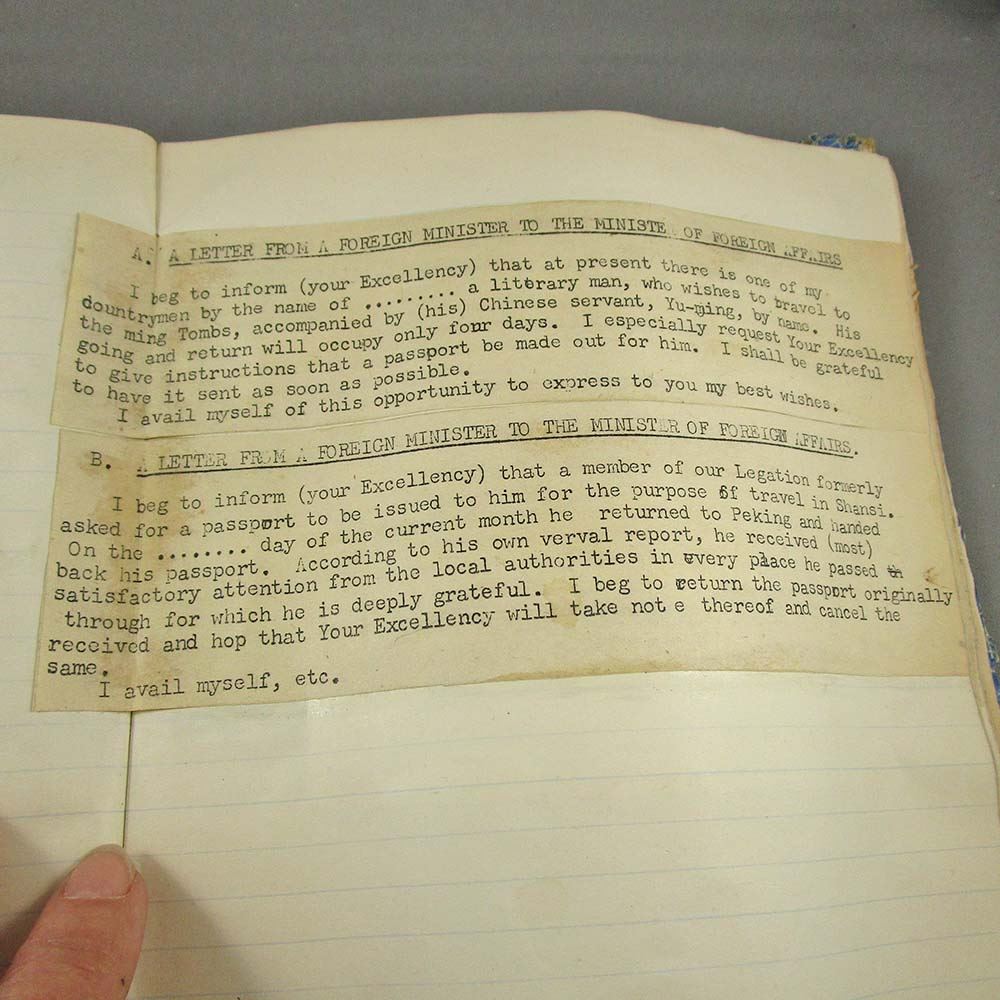 A. A LETTER FROM A FOREIGN MINISTER TO THE MINISTE OF FOREIGN AFFAIRS
I beg to inform (your Excellency) that at present there is one of my
countrymen by the name of ......... a literary man, who wishes to travel to
the ming Tombs, accompanied by (his) Chinese servant, Yu-ming, by name. His
going and return will occupy only four days. I especially request Your Excellency
to give instructions that a passport be made out for him. I shall be grateful
to have it sent as soon as possible.
I avail myself of this opportunity to express to you my best wishes.
B. A LETTER FROM A FOREIGN MINISTER TO THE MINISTER OF FOREIGN AFFAIRS.
I beg to inform (your Excellency) that a member of our Legation formerly
asked for a passport to be issued to him for the purpose of travel in Shansi.
On the ........ day of the current month he returned to Peking and handed
back his passport. According to his own verval report, he received (most)
satisfactory attention from the local authorities in every place he passed th
through for which he is deeply grateful. I beg to return the passport originally
received and hop that Your Excellency will take not e thereof and cancel the
same.
I avail myself, etc.